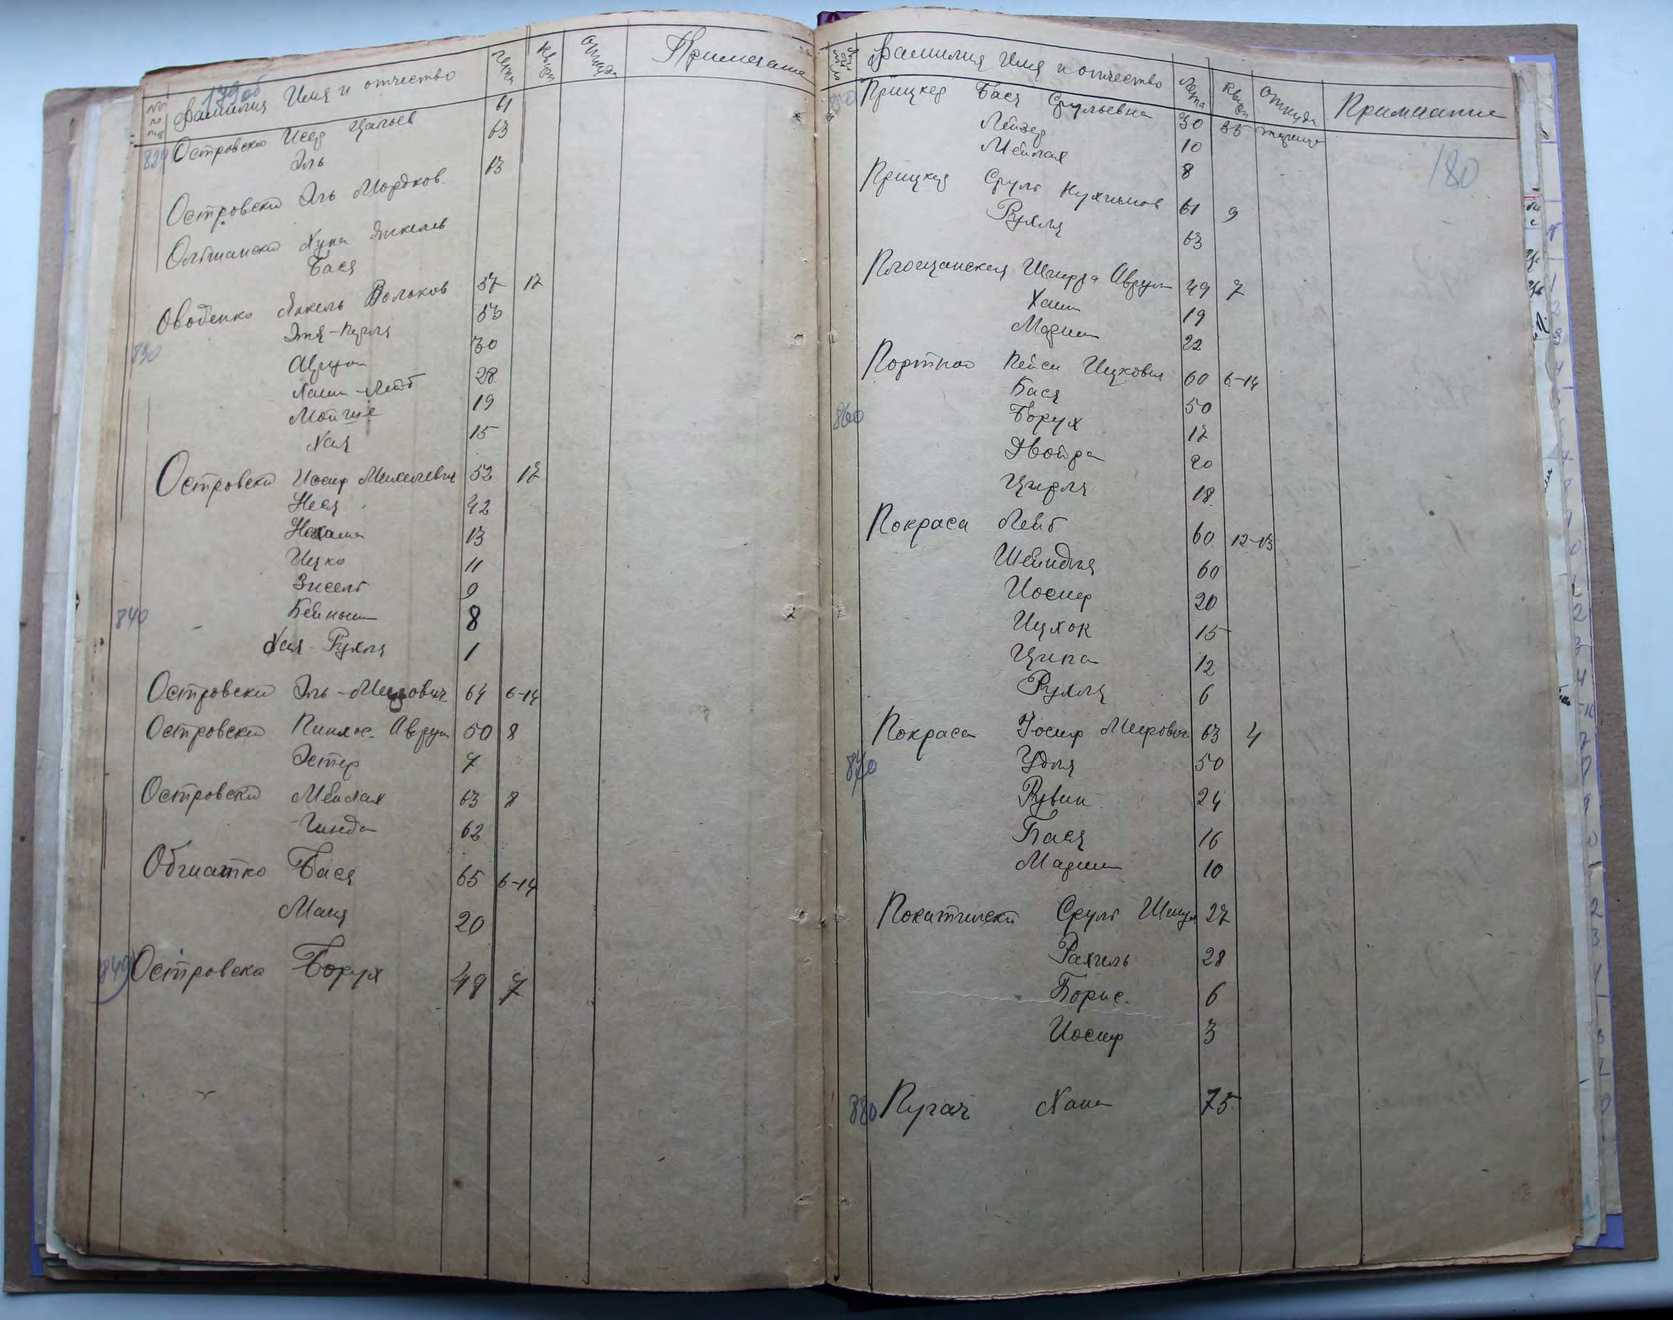 179об
№№ по пор Фамилия Имя и отчество Лета Кварт Откуда Примечание
829 Островский Исер 61
Эль 63
Островский Эль Мордков. 13
Ольшанский Нуха Янкелев
Бася
Оводенко Янкель Вольков 57 17
830 Этя-Перля 50
Аврум 30
Хаим-Лейб 28
Мойше 19
Хая 15
Островский Иосиф 52 17
Неся 42
Нехама 13
Ицко 11
Зисель 9
840 Бейныш 8
Хая-Рухля 1
Островский Эль-Меерович 64 6-14
Островский Пинхос Аврум 50 8
Эстер 7
Островский Мейлах 63 8
Гинда 62
Обгиатко Бася 65 6-14
Маня 20
849 Островска Борух 49 7
180
Фамилия Имя и отчество Лета Кварт Откуда Примечание
850 Прицкер Бася Срульевна 30 35
Лейзер 10
Мейлах 8
Прицкер Сруль Нухимов 61 9
Рухля 63
Площанская Аврум 49 7
Хаим 19
Мориц 22
Портной Пейси Ицкович 60 6-14
Бася 50
860 Борух 17
Двойра 20
Цирля 18
Покраса Лейб 60 12-13
Шейндля 60
Иосиф 20
Ицхок 15
Ципа 12
Рухля 6
Покраса Иосиф Меерович 63 4
870 Удля 50
Рувин 24
Бася 16
Мориц 10
Покатилский Сруль Шмул 27
Рахиль 28
Борис. 6
Иосиф 3
880 Пугач Хана 75